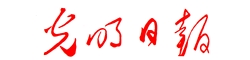 光明日報